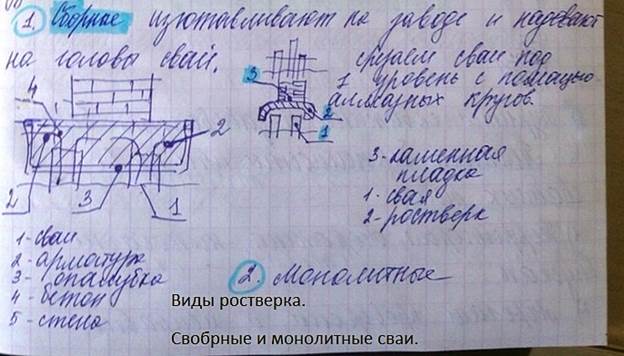 1. Сборные изготавливают на заводе и надевают
на головы свай.
срезаем сваи под
1 уровень с помощью
алмазных кругов.
4
2
2
3
1
3
2
1
3-каменная
кладка
1-свая
2-ростверк
1-сваи
2-арматура
3-опалубка
4-бетон
5-стена
2. Монолитные
Виды ростверка.
Свобрные и монолитные сваи.